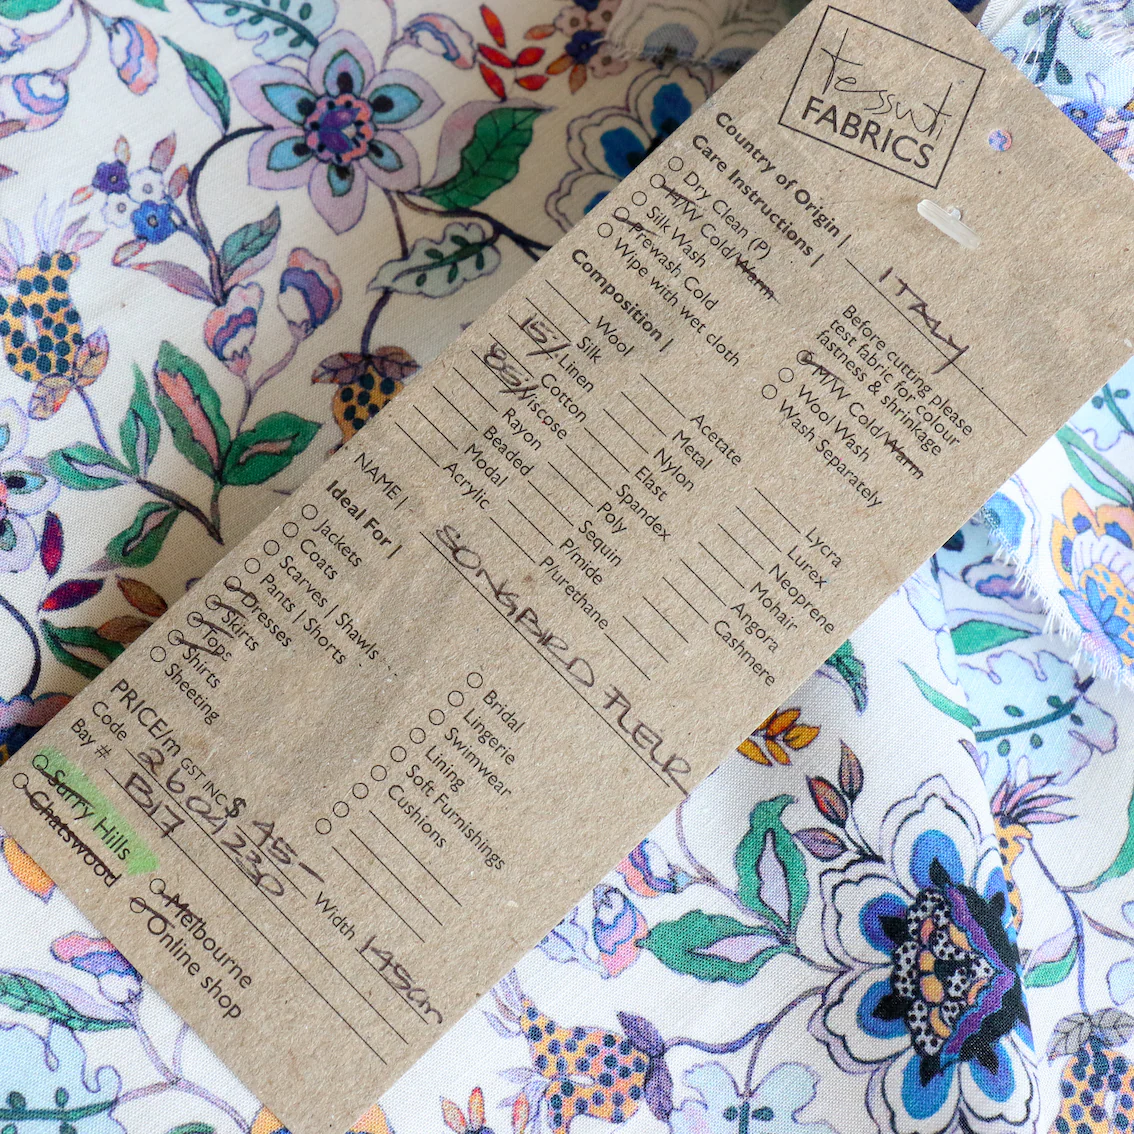 tessuti
FABRICS
Country of Origin | ITALY
Care Instructions |
Dry Clean (P)
M/W Cold/Warm
Silk Wash
Prewash Cold
Wipe with wet cloth
Before cutting please
test fabric for colour
fastness & shrinkage
M/W Cold/Warm
Wool Wash
Wash Separately
Composition |
Wool
Silk
15% Linen
Cotton
85% Viscose
Rayon
Beaded
Modal
Acrylic
Acetate
Metal
Nylon
Elast
Spandex
Poly
Sequin
P/mide
P/urethane
Lycra
Lurex
Neoprene
Mohair
Angora
Cashmere
NAME | SONGBIRD FLEUR
Ideal For |
Jackets
Coats
Scarves | Shawls
Pants | Shorts
Dresses
Skirts
Tops
Shirts
Sheeting
Bridal
Lingerie
Swimwear
Lining
Soft Furnishings
Cushions
PRICE/m GST INC $ 45- Width 145cm
Code 2604230
Bay # B17
Surry Hills
Chatswood
Melbourne
Online shop